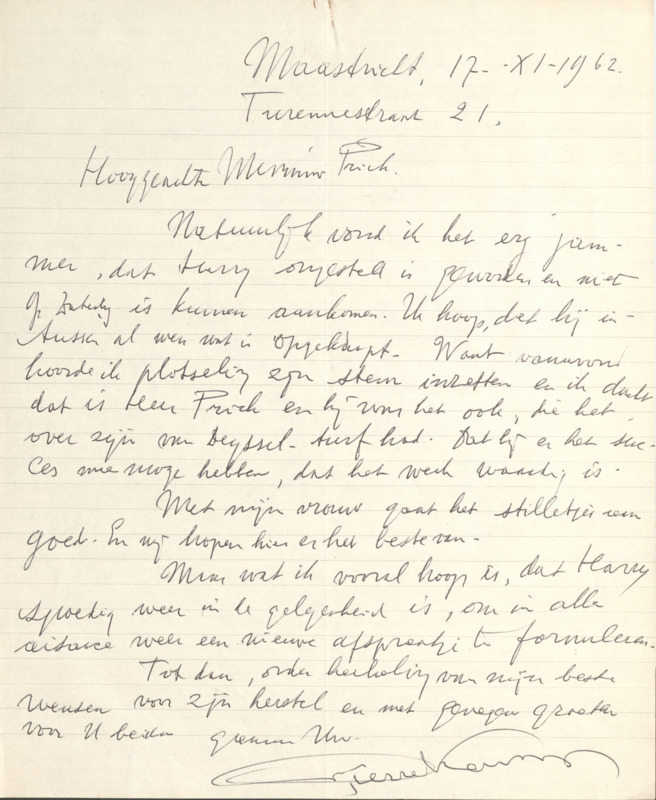 Maastricht, 17-XI-1962.
Turennestraat 21.
Hooggeachte Mevrouw Prick.
Natuurlijk vond ik het erg jam-
mer, dat Harry ongesteld is geworden en niet
op Zaterdag is kunnen aankomen. Ik hoop, dat hij in-
tussen al weer wat is opgeknapt. Want vanavond
hoorde ik plotseling zijn stem inzetten en ik dacht
dat is Heer Prick en hij was het ook, die het
over zijn van Deyssel- had. Dat hij er het suc-
ces mee moge hebben, dat het werk waardig is.
Met mijn vrouw gaat het stilletjes aan
goed. En wij hopen hier er het beste van.
Maar wat ik vooral hoop is, dat Harry
spoedig weer in de gelegenheid is, om in alle
weer een nieuwe afspraakje te formuleren.
Tot dan, onder herhaling van mijn beste
wensen voor zijn herstel en met genegen groeten
voor U beiden gaarne Uw.
Pierre Kemp